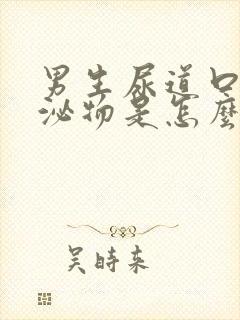 男生尿道口
泌物是怎麼
吴時来